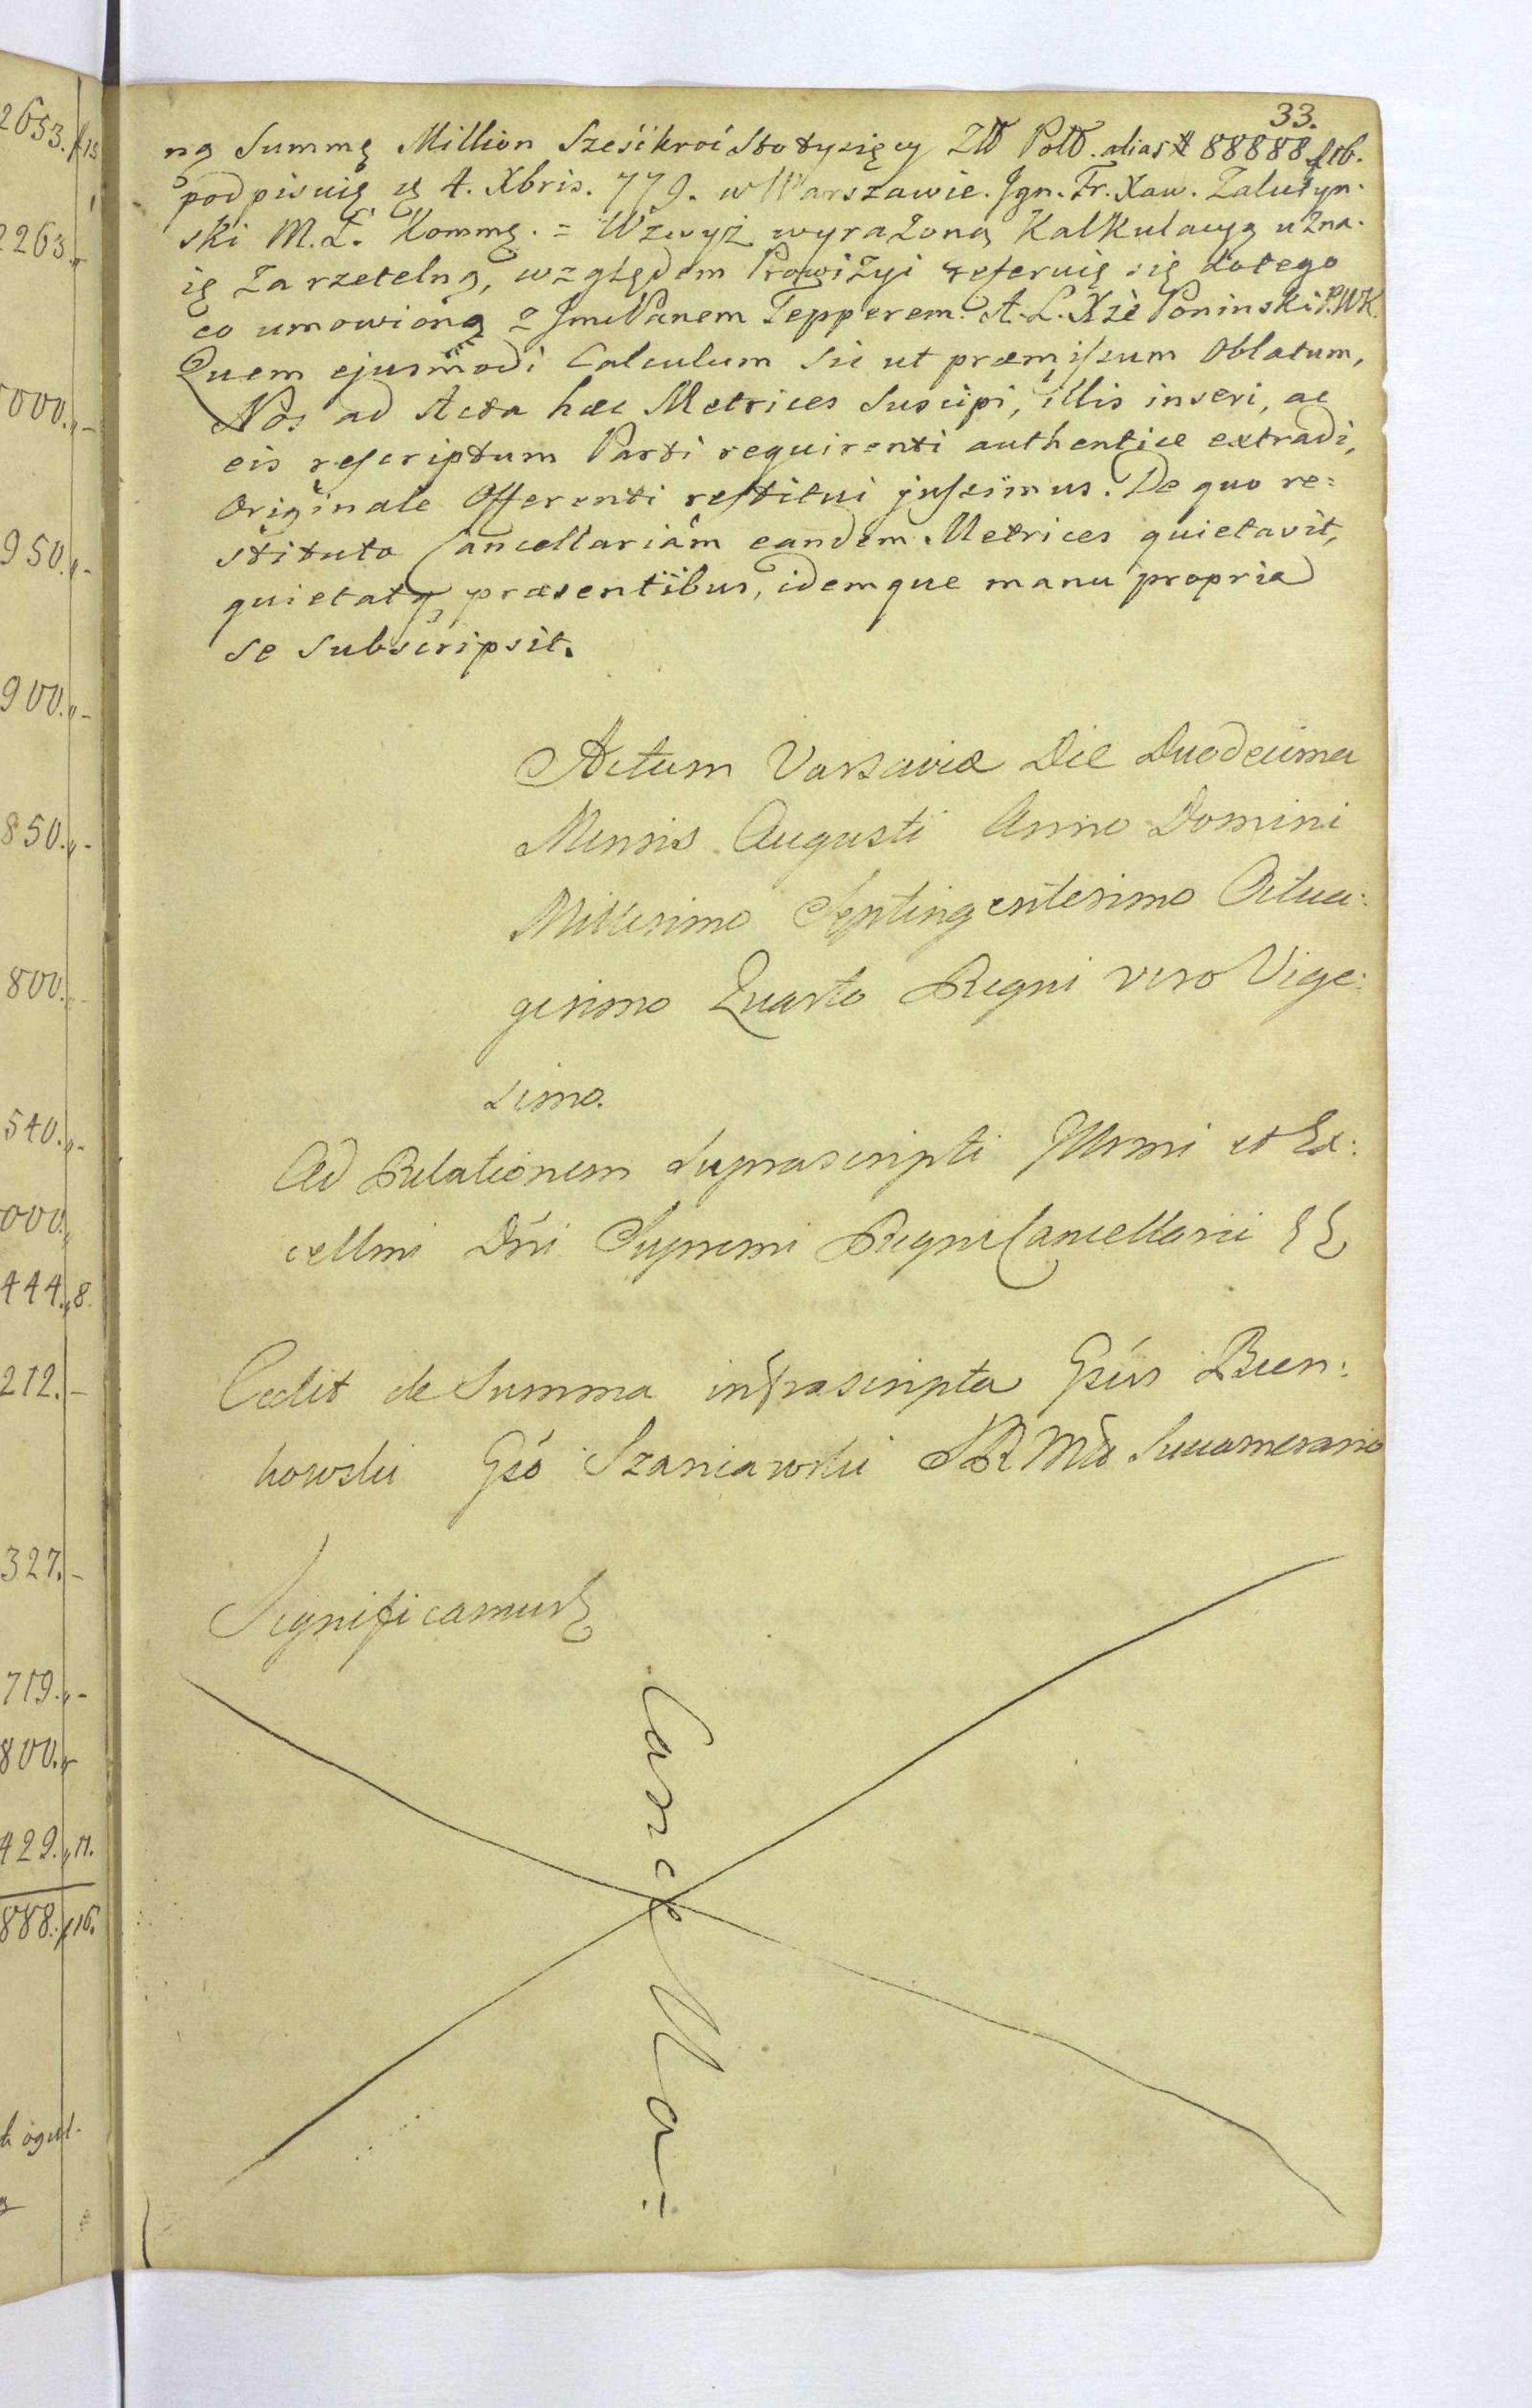 2653.
2263.
000.
950.,-
900.,-
850.,-
800.
540.,-
000.
444.,8.
212.-
327.-
719.,-
800.
429.,11.
888.,16.
33.
ną Summę Million Sześćkroć Stotysięcy Zlł Polł. alias # 88888 f 16.
podpisuię się 4. Xbris. 779. w Warszawie. Ign. Fr. Xaw. Załuskyn-
ski M.Ł. Kommę. = Wzwyż wyrażoną Kalkulacyą uzna-
ię za rzetelną, względem Prowizyi referuię się do tego
co umowioną z Jmć Panem Tepperem. A. L. Xżè Poninski P.W.K.
Quem ejusmodi Calculum sic ut præmissum Oblatum,
Nos ad Acta hæc Metrices Suscipi, illis inseri, ac
eis rescriptum Parti requirenti authentice extradi,
Originale Offerenti restitui jussimus. De quo re=
stituto Cancellariam eandem Metrices quietavit,
quietatq præsentibus, idemque manu propria
se subscripsit.
Actum Varsaviæ Die Duodecima
Mensis Augusti Anno Domini
Millesimo Septingentesimo Octua:
gesimo Quarto Regni vero Vige:
simo.
Ad Relationem Suprascripti Illrmi et Ex:
cellmi Dńi Supremi Regni Cancellarii
Cedit de Summa infrascripta Gsús Bien:
kowski Gsó Szaniawski SRMtis Succamerario
Significamus
Cancella: